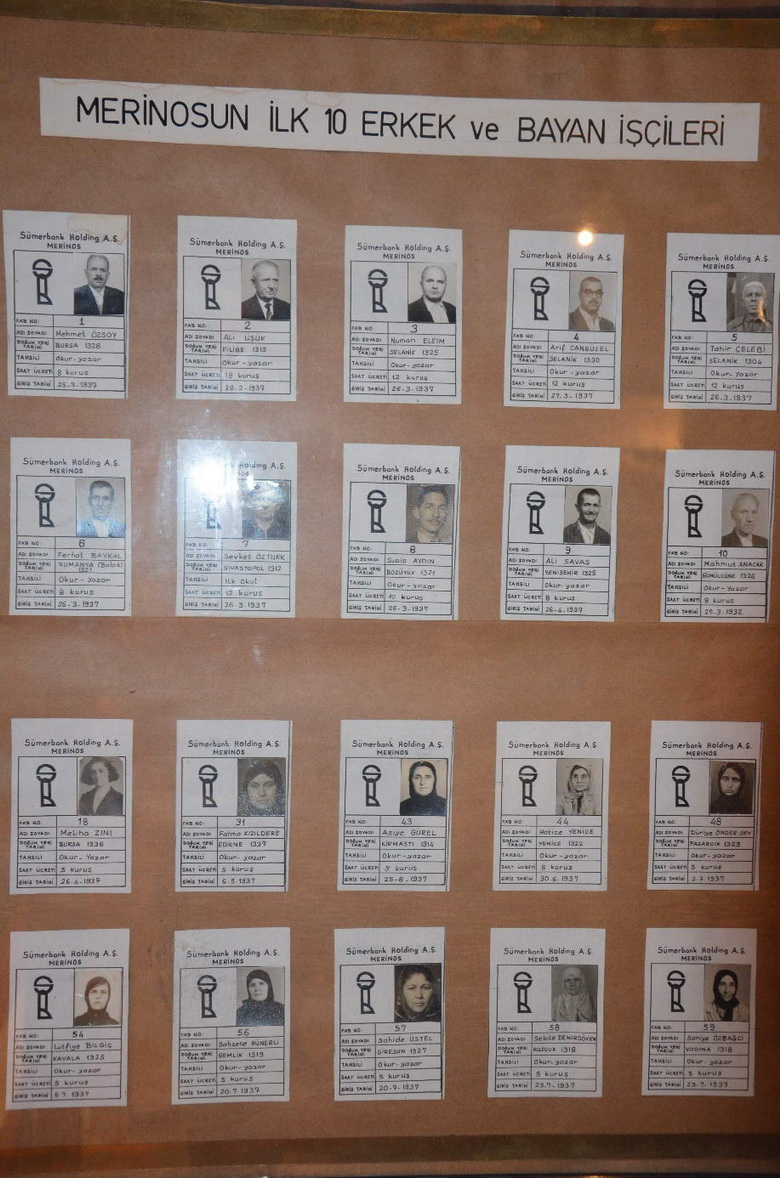 MERİNOSUN İLK 10 ERKEK ve BAYAN İŞÇİLERİ
Sümerbank Holding A.Ş.
MERİNOS
FAB NO: 1
ADI SOYADI Mehmet ÖZSOY
DOĞUM YERİ TARİHİ BURSA 1328
TAHSİLİ Okur-yazar
SAAT ÜCRETİ 8 kuruş
GİRİŞ TARİHİ 25-3-1937
Sümerbank Holding A.Ş.
MERİNOS
FAB NO: 2
ADI SOYADI Ali UŞUK
DOĞUM YERİ TARİHİ FİLİBE 1313
TAHSİLİ Okur-yazar
SAAT ÜCRETİ 18 kuruş
GİRİŞ TARİHİ 26-2-1937
Sümerbank Holding A.Ş.
MERİNOS
FAB NO: 3
ADI SOYADI Numan ELEİM
DOĞUM YERİ TARİHİ SELANİK 1325
TAHSİLİ Okur-yazar
SAAT ÜCRETİ 12 kuruş
GİRİŞ TARİHİ 26-3-1937
Sümerbank Holding A.Ş.
MERİNOS
FAB NO: 4
ADI SOYADI Arif CANBUZEL
DOĞUM YERİ TARİHİ SELANİK 1330
TAHSİLİ Okur-yazar
SAAT ÜCRETİ 12 kuruş
GİRİŞ TARİHİ 27.3.1937
Sümerbank Holding A.Ş.
MERİNOS
FAB NO: 5
ADI SOYADI Tahir ÇELEBİ
DOĞUM YERİ TARİHİ SELANİK 1304
TAHSİLİ Okur-yazar
SAAT ÜCRETİ 12 kuruş
GİRİŞ TARİHİ 26.3.1937
Sümerbank Holding A.Ş.
MERİNOS
FAB NO: 6
ADI SOYADI Ferhat BAYKAL
DOĞUM YERİ TARİHİ ROMANYA 1321
TAHSİLİ Okur-Yazar
SAAT ÜCRETİ 8 kuruş
GİRİŞ TARİHİ 26-3-1937
Holding A.Ş.
FAB NO: 7
ADI SOYADI Şevket ÖZTÜRK
DOĞUM YERİ TARİHİ SİVASTOPOL 1312
TAHSİLİ İlk okul
SAAT ÜCRETİ 12 kuruş
GİRİŞ TARİHİ 26-3-1937
Sümerbank Holding A.Ş.
MERİNOS
FAB NO: 8
ADI SOYADI AYDIN
DOĞUM YERİ TARİHİ BOZÜYÜK 1321
TAHSİLİ Okur-yazar
SAAT ÜCRETİ 10 kuruş
GİRİŞ TARİHİ 26-3-1937
Sümerbank Holding A.Ş.
MERİNOS
FAB NO: 9
ADI SOYADI Ali SAVAŞ
DOĞUM YERİ TARİHİ YENİŞEHİR 1325
TAHSİLİ Okur-yazar
SAAT ÜCRETİ 8 kuruş
GİRİŞ TARİHİ 26-4-1937
Sümerbank Holding A.Ş.
MERİNOS
FAB NO: 10
ADI SOYADI Mahmut ANACAK
DOĞUM YERİ TARİHİ GÜMÜLCÜNE 1326
TAHSİLİ Okur-Yazar
SAAT ÜCRETİ 8 kuruş
GİRİŞ TARİHİ 27.3.1932
Sümerbank Holding A.Ş.
MERİNOS
FAB NO: 18
ADI SOYADI Meliha ZINI
DOĞUM YERİ TARİHİ BURSA 1336
TAHSİLİ Okur-Yazar
SAAT ÜCRETİ 5 kuruş
GİRİŞ TARİHİ 26-4-1937
Sümerbank Holding A.Ş.
MERİNOS
FAB NO: 31
ADI SOYADI Fatma KIZILDERE
DOĞUM YERİ TARİHİ EDİRNE 1337
TAHSİLİ Okur-yazar
SAAT ÜCRETİ 5 kuruş
GİRİŞ TARİHİ 6-5-1937
Sümerbank Holding A.Ş.
MERİNOS
FAB NO: 43
ADI SOYADI Asiye GÜREL
DOĞUM YERİ TARİHİ KİRMASTI 1314
TAHSİLİ Okur-yazar
SAAT ÜCRETİ 5 kuruş
GİRİŞ TARİHİ 25-6-1937
Sümerbank Holding A.Ş.
MERİNOS
FAB NO: 44
ADI SOYADI Hatice YENİCE
DOĞUM YERİ TARİHİ YENİCE 1322
TAHSİLİ Okur-yazar
SAAT ÜCRETİ 5 kuruş
GİRİŞ TARİHİ 30-6-1937
Sümerbank Holding A.Ş.
MERİNOS
FAB NO: 48
ADI SOYADI Düriye ÖNDER SEV
DOĞUM YERİ TARİHİ PAZARCIK 1323
TAHSİLİ Okur-yazar
SAAT ÜCRETİ 5 kuruş
GİRİŞ TARİHİ 2-7-1937
Sümerbank Holding A.Ş.
MERİNOS
FAB NO: 54
ADI SOYADI Lütfiye BİLGİÇ
DOĞUM YERİ TARİHİ KAVALA 1325
TAHSİLİ Okur-yazar
SAAT ÜCRETİ 5 kuruş
GİRİŞ TARİHİ 6.7.1937
Sümerbank Holding A.Ş.
MERİNOS
FAB NO: 56
ADI SOYADI Şahzene HÜNERLİ
DOĞUM YERİ TARİHİ GEMLİK 1319
TAHSİLİ Okur-yazar
SAAT ÜCRETİ 5 kuruş
GİRİŞ TARİHİ 20-7-1937
Sümerbank Holding A.Ş.
MERİNOS
FAB NO: 57
ADI SOYADI Sahide ÜSTEL
DOĞUM YERİ TARİHİ GİRESON 1327
TAHSİLİ Okur-yazar
SAAT ÜCRETİ 5 kuruş
GİRİŞ TARİHİ 20-7-1937
Sümerbank Holding A.Ş.
MERİNOS
FAB NO: 58
ADI SOYADI Sebile DEMİRDÖVEN
DOĞUM YERİ TARİHİ 1318
TAHSİLİ Okur-yazar
SAAT ÜCRETİ 5 kuruş
GİRİŞ TARİHİ 23.7-1937
Sümerbank Holding A.Ş.
MERİNOS
FAB NO: 59
ADI SOYADI Saniye ÖZBAĞCI
DOĞUM YERİ TARİHİ VODİNA 1318
TAHSİLİ Okur-yazar
SAAT ÜCRETİ 5 kuruş
GİRİŞ TARİHİ 23-7-1937